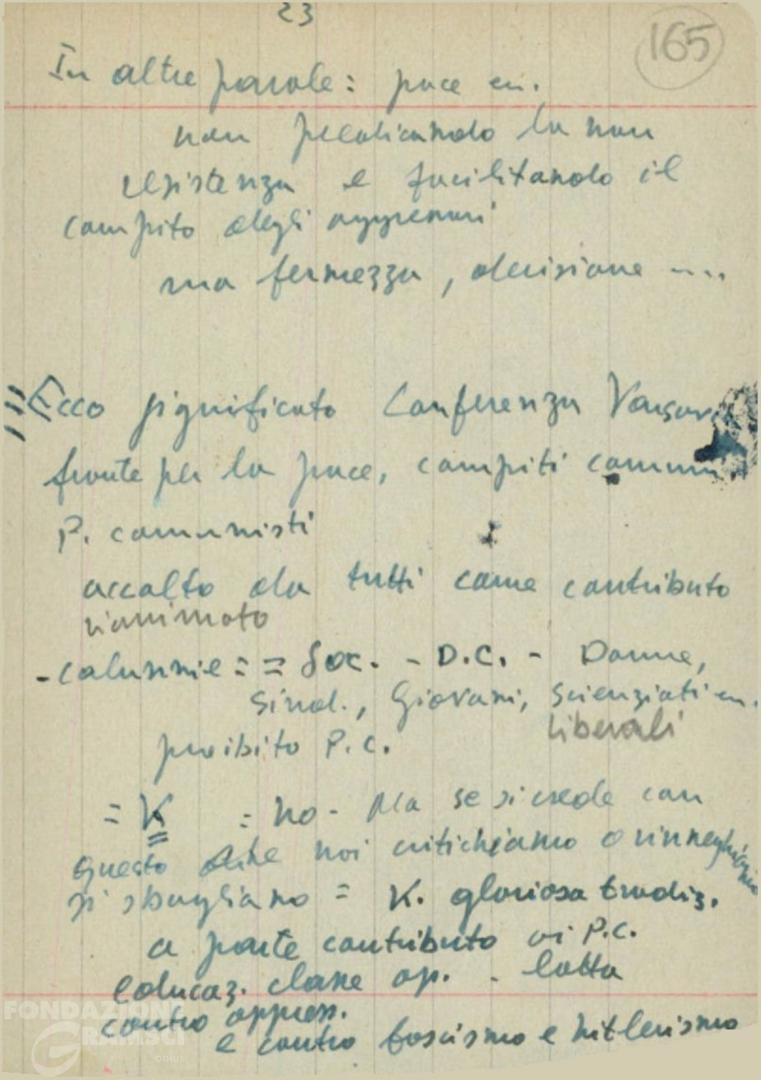 23
165
In altre parole: pace ecc.
non predicando la non
resistenza e facilitando il
compito degli aggressori
ma fermezza, decisione ....
Ecco significato Conferenza
fronte per la pace, compiti comuni
P. comunisti
accolto da tutti come contributo
rianimato
- calunnie : = Soc. - D.C. - Donne,
Sind., Giovani, Scienziati ecc.
liberali
proibito P.C.
= K : no - Ma se si crede con
questo che noi critichiamo o rinneghiamo
si sbagliano = K. gloriosa tradiz.
a parte contributo ai P.C.
educaz. classe op. - lotta
contro oppress.
e contro fascismo e hitlerismo
FONDAZIONE
GRAMSCI
ONLUS